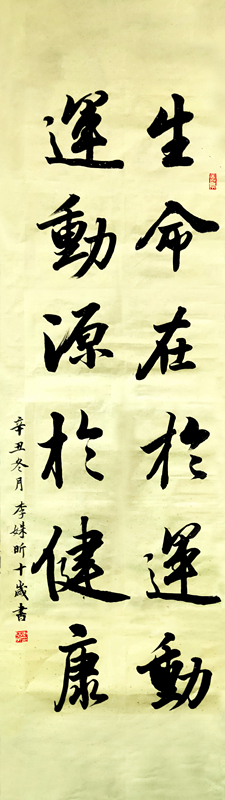 生命在於運動
運動源於健康
辛丑冬月李姝昕十歲書